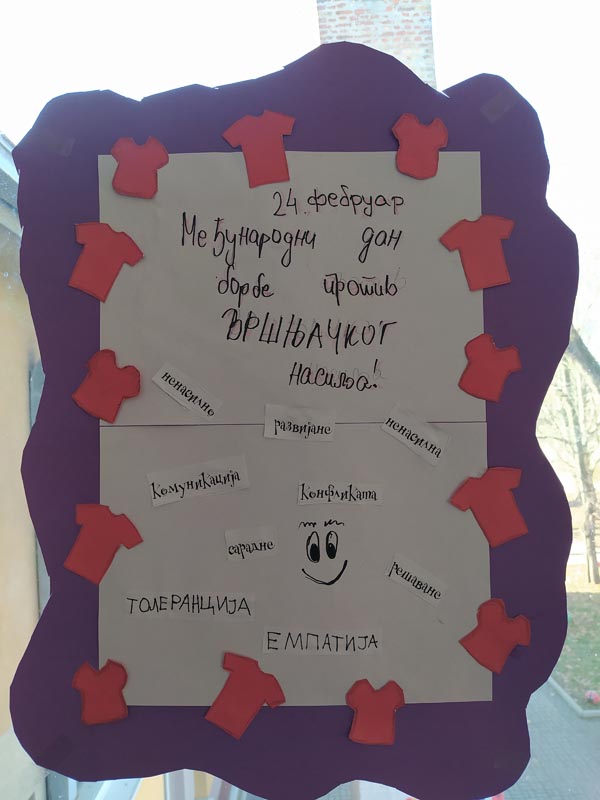 24. фебруар
Међународни дан
борбе против
ВРШЊАЧКОГ
насиља!
ненасилно
развијане
ненасилна
комуникација
конфликата
сарадне
решаване
ТОЛЕРАНЦИЈА
ЕМПАТИЈА